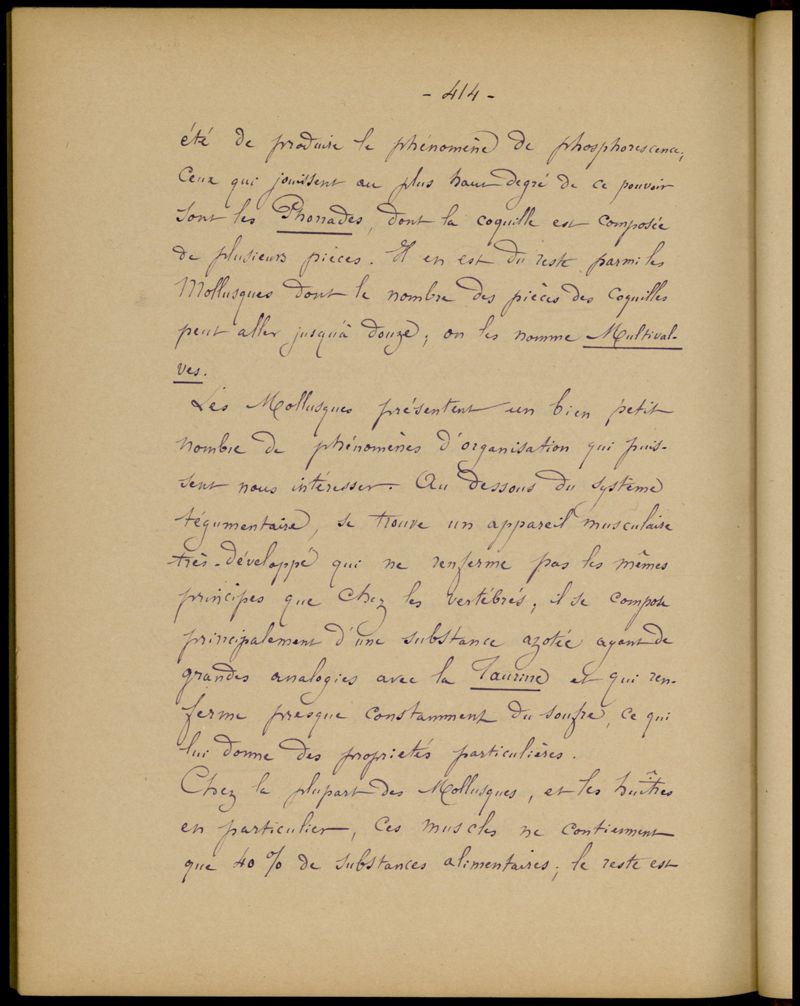 - 414 -
été de produire le phénomène de phosphorescence;
Ceux qui jouissent au plus haut degré de ce pouvoir
sont les Phonades, dont la coquille est composée
de plusieurs pièces. Il en est du reste parmi les
Mollusques dont le nombre des pièces des coquilles
peut aller jusqu'à douze; on les nomme Multival-
ves.
Les Mollusques présentent un bien petit
nombre de phénomènes d'organisation qui puis-
sent nous intéresser. Au dessous du système
tégumentaire, se trouve un appareil musculaire
très-développé qui ne renferme pas les mêmes
principes que chez les vertébrés; il se compose
principalement d'une substance azotée ayant de
grandes analogies avec la Taurine et qui ren-
ferme presque constamment du soufre, ce qui
lui donne des propriétés particulières.
Chez la plupart des Mollusques, et les huîtres
en particulier, ces muscles ne contiennent
que 40 % de substances alimentaires; le reste est